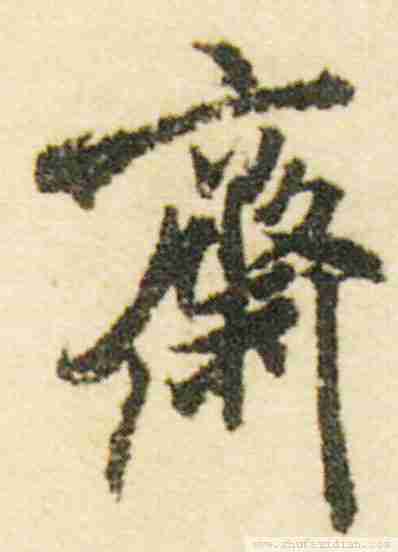 齋
www.shufazidian.com